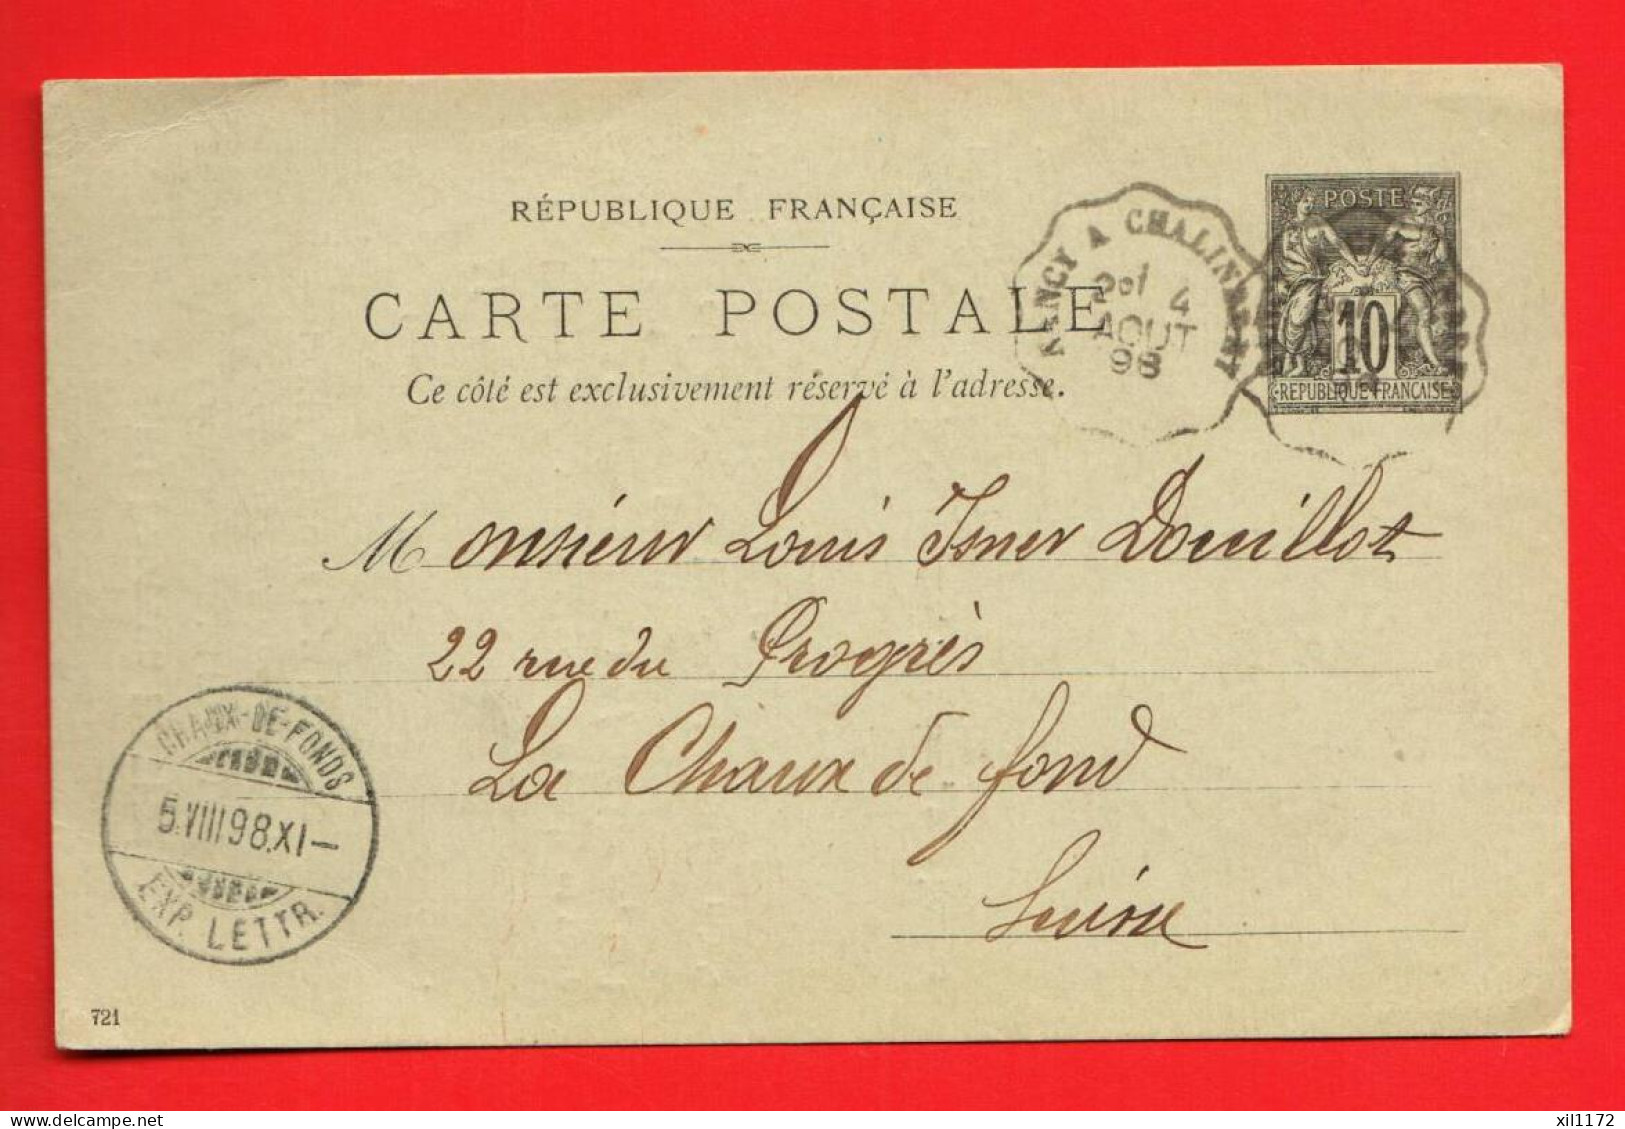 RÉPUBLIQUE FRANÇAISE
CARTE POSTALE
Ce côté est exclusivement réservé à l'adresse.
NANCY A CHALINDREY
4
AOUT
98
POSTE
10
REPUBLIQUE FRANÇAISE
Monsieur Louis Isner Douillot
22 rue du Progrès
La Chaux de fond
Suisse
CHAUX-DE-FONDS
5.VIII98.XI–
EXP. LETTR.
721
delcampe.net
xil1172